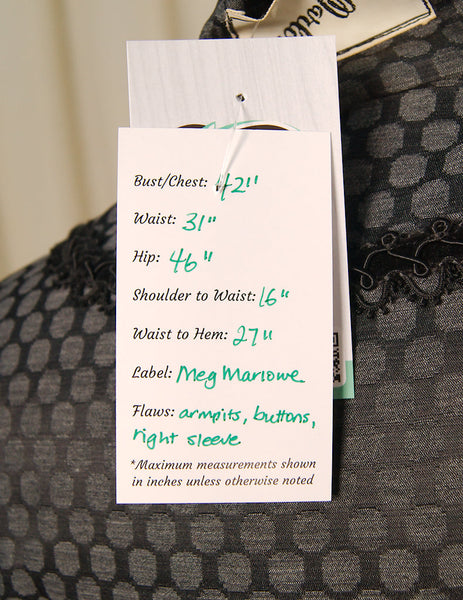 Bust/Chest: 42"
Waist: 31"
Hip: 46"
Shoulder to Waist: 16"
Waist to Hem: 27"
Label: Meg Marlowe
Flaws: armpits, buttons,
right sleeve
*Maximum measurements shown
in inches unless otherwise noted